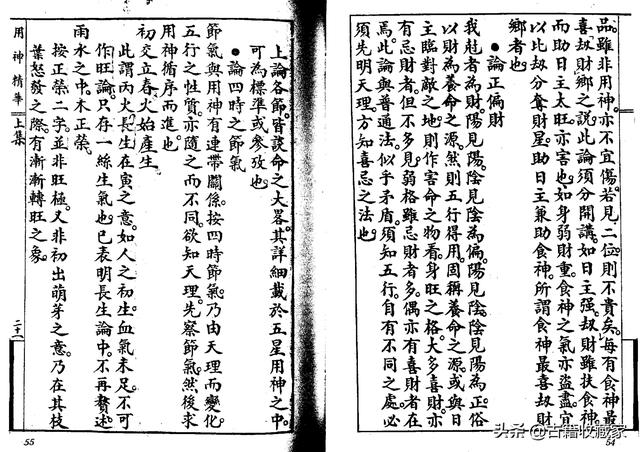 品。雖非用神。亦不宜傷。若見二位。則不貴矣。每有食神最
喜刼財鄉之說。此論須分開講。如日主强。刼財雖扶食神。
而助日主太旺。亦害也。如身弱財重。食神之氣亦盜盡。宜
以比刼分奪財星。助日主兼助食神。所謂食神最喜刼財
鄉者也。
●論正偏財
我尅者為財。陽見陽陰見陰為偏。陽見陰陰見陽為正。俗
以財為養命之源。然則五行得用。固稱養命之源。或與日
主臨對敵之地。則作害命之物看。身旺之格。大多喜財。亦
有忌財者。但不多見。弱格雖忌財者多。偶亦有喜財者在
焉。此論與普通法。似乎矛盾。須知五行。自有不同之處。必
須先明天理。方知喜忌之法也。
54
上論各節。皆談命之大畧。其詳細載於五星用神之中。
可為標準或參攷也。
●論四時之節氣
節氣與用神有連帶關係。按四時節氣。乃由天理而變化。
五行之性質。亦隨之而不同。欲知天理。先察節氣。然後求
用神循序而進也。
初交立春火始產生。
此謂丙火長生在寅之意。如人之初生。血氣未足。不可
作旺論。只存一絲生氣也。已表明長生論中。不再贅述。
雨水之中。木正榮。
按正榮二字。並非旺極。又非初出萌芽之意。乃在其枝
葉怒發之際。有漸漸轉旺之象。
用神精華 上集
二十八
55
头条 @古籍收藏家